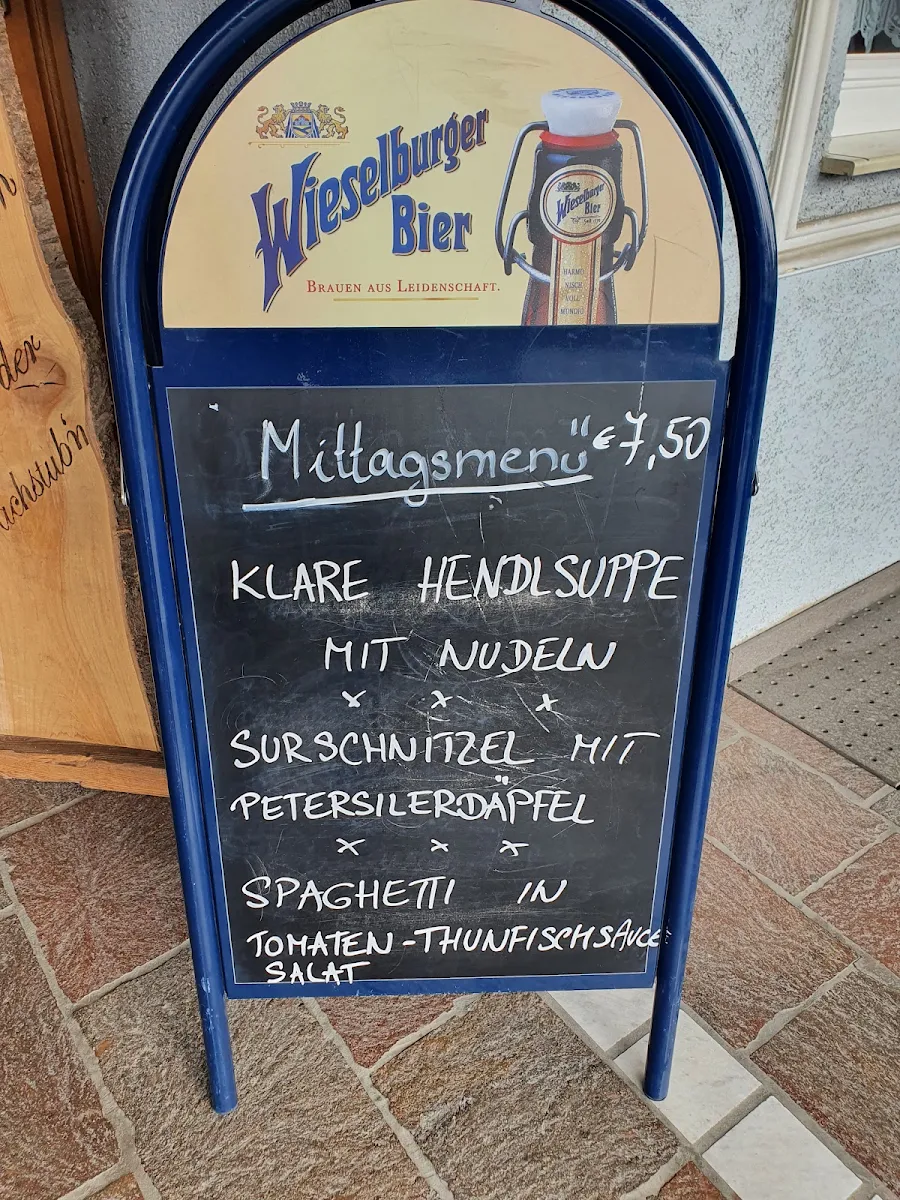 Wieselburger
Bier
BRAUEN AUS LEIDENSCHAFT.
Wieselburger
Bier
HARMO
NISCH
VOLL
MUNDIG
Mittagsmenü €7,50
KLARE HENDLSUPPE
MIT NUDELN
x x x
SURSCHNITZEL MIT
PETERSILERDÄPFEL
x x x
SPAGHETTI IN
TOMATEN-THUNFISCHSAUCE
SALAT